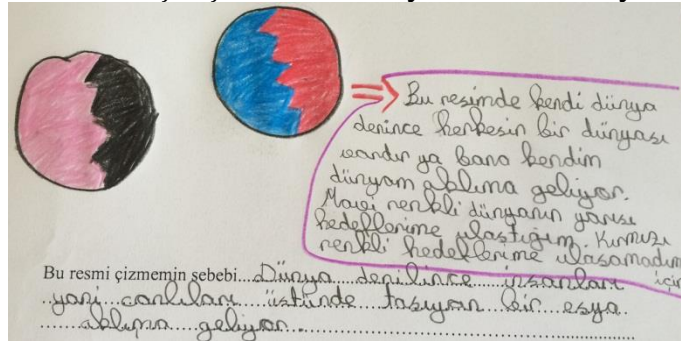 Bu resimde kendi dünya
denince herkesin bir dünyası
vardır ya bana kendim
dünyam aklıma geliyor.
Mavi renkli dünyanın yarısı
hedeflerime ulaştığım. Kırmızı
renkli hedeflerime ulaşamadım
için
Bu resmi çizmemin sebebi...Dünya...denilince...insanları
yani...canlıları...üstünde...taşıyan...bir...eşya
aklıma...geliyor...